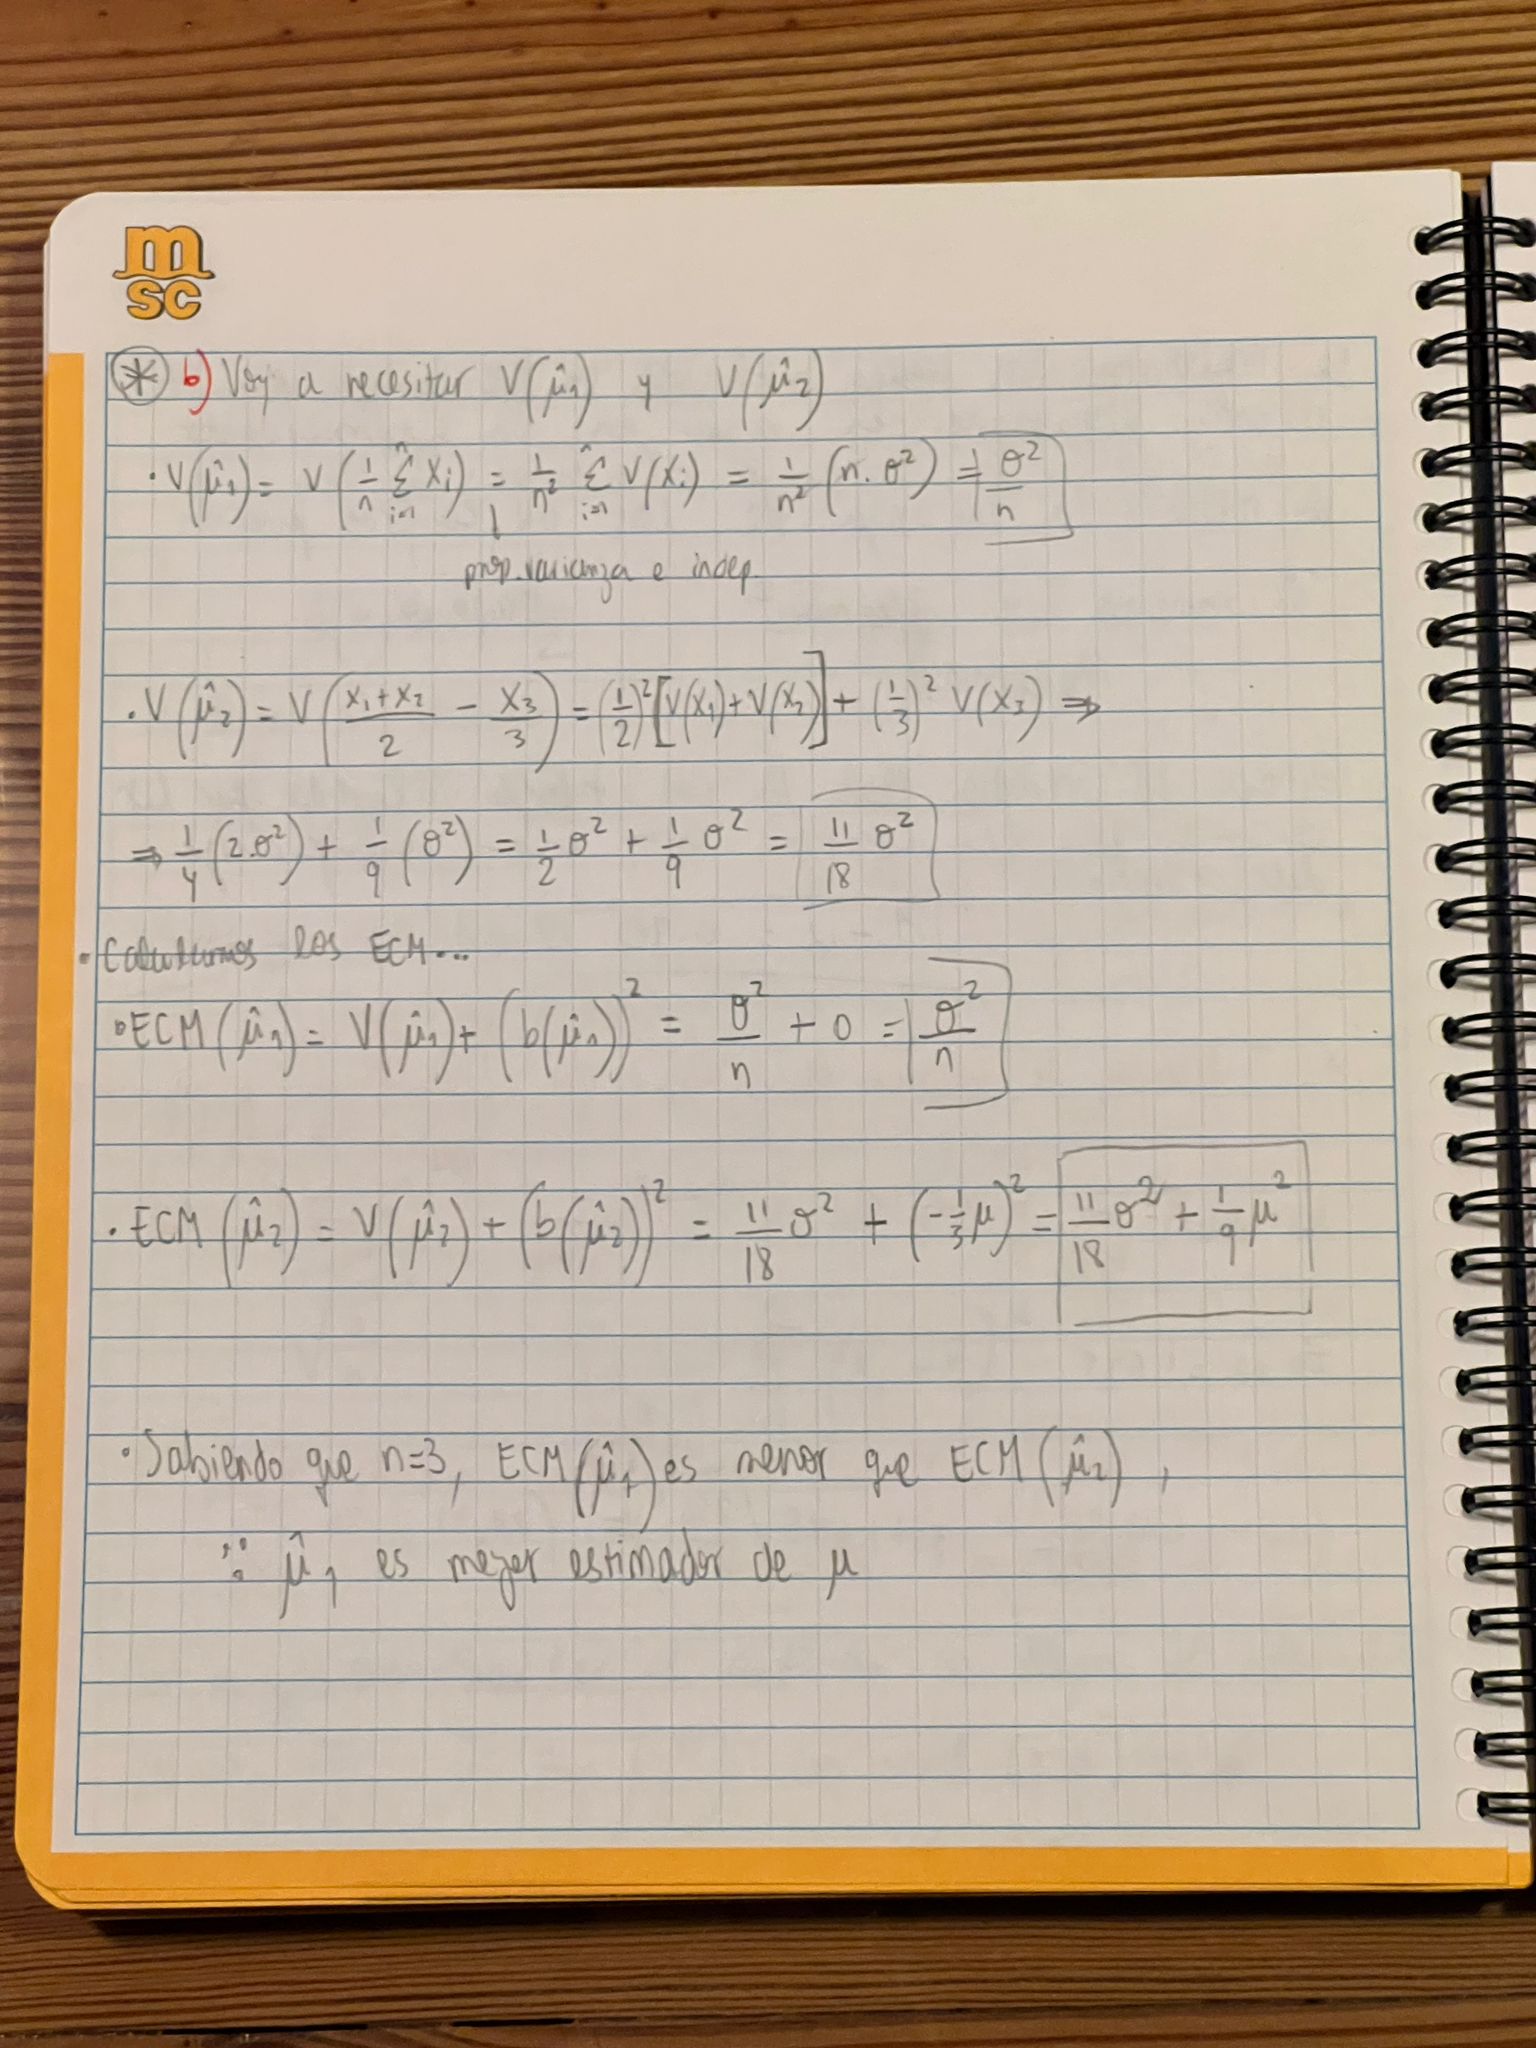 m
sc
* b) Voy a necesitar V(μ̂₁) y V(μ̂₂)
· V(μ̂₁) = V(1/n Σᵢ₌₁ⁿ Xᵢ) = 1/n² Σᵢ₌₁ⁿ V(Xᵢ) = 1/n² (n·σ²) = σ²/n
prop. varianza e indep.
· V(μ̂₂) = V((X₁+X₂)/2 − X₃/3) = (1/2)² [V(X₁)+V(X₂)] + (1/3)² V(X₃) ⇒
⇒ 1/4 (2·σ²) + 1/9 (σ²) = 1/2 σ² + 1/9 σ² = 11/18 σ²
· Calculamos los ECM...
· ECM(μ̂₁) = V(μ̂₁) + (b(μ̂₁))² = σ²/n + 0 = σ²/n
· ECM(μ̂₂) = V(μ̂₂) + (b(μ̂₂))² = 11/18 σ² + (−1/3 μ)² = 11/18 σ² + 1/9 μ²
· Sabiendo que n=3, ECM(μ̂₁) es menor que ECM(μ̂₂),
∴ μ̂₁ es mejor estimador de μ